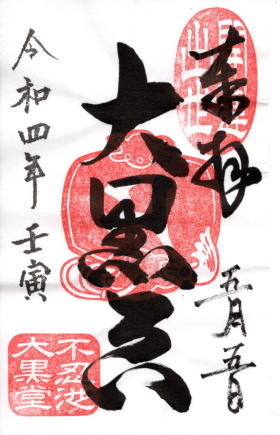 奉拝
五月五日
大黒天
令和四年 壬寅
不忍池
大黒堂